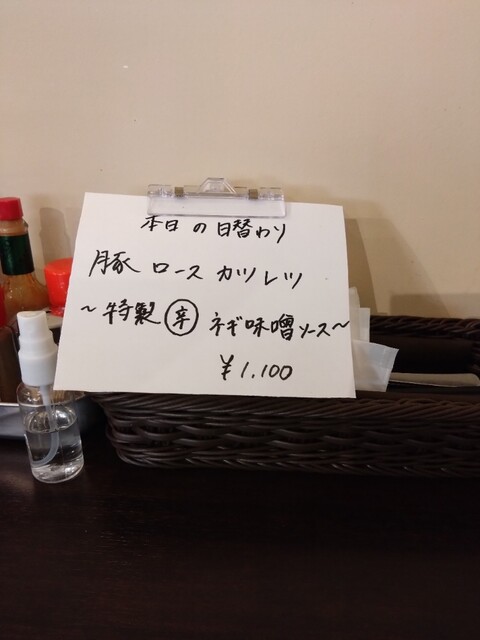 本日の日替わり
豚ロースカツレツ
~特製㊛ネギ味噌ソース~
¥1,100